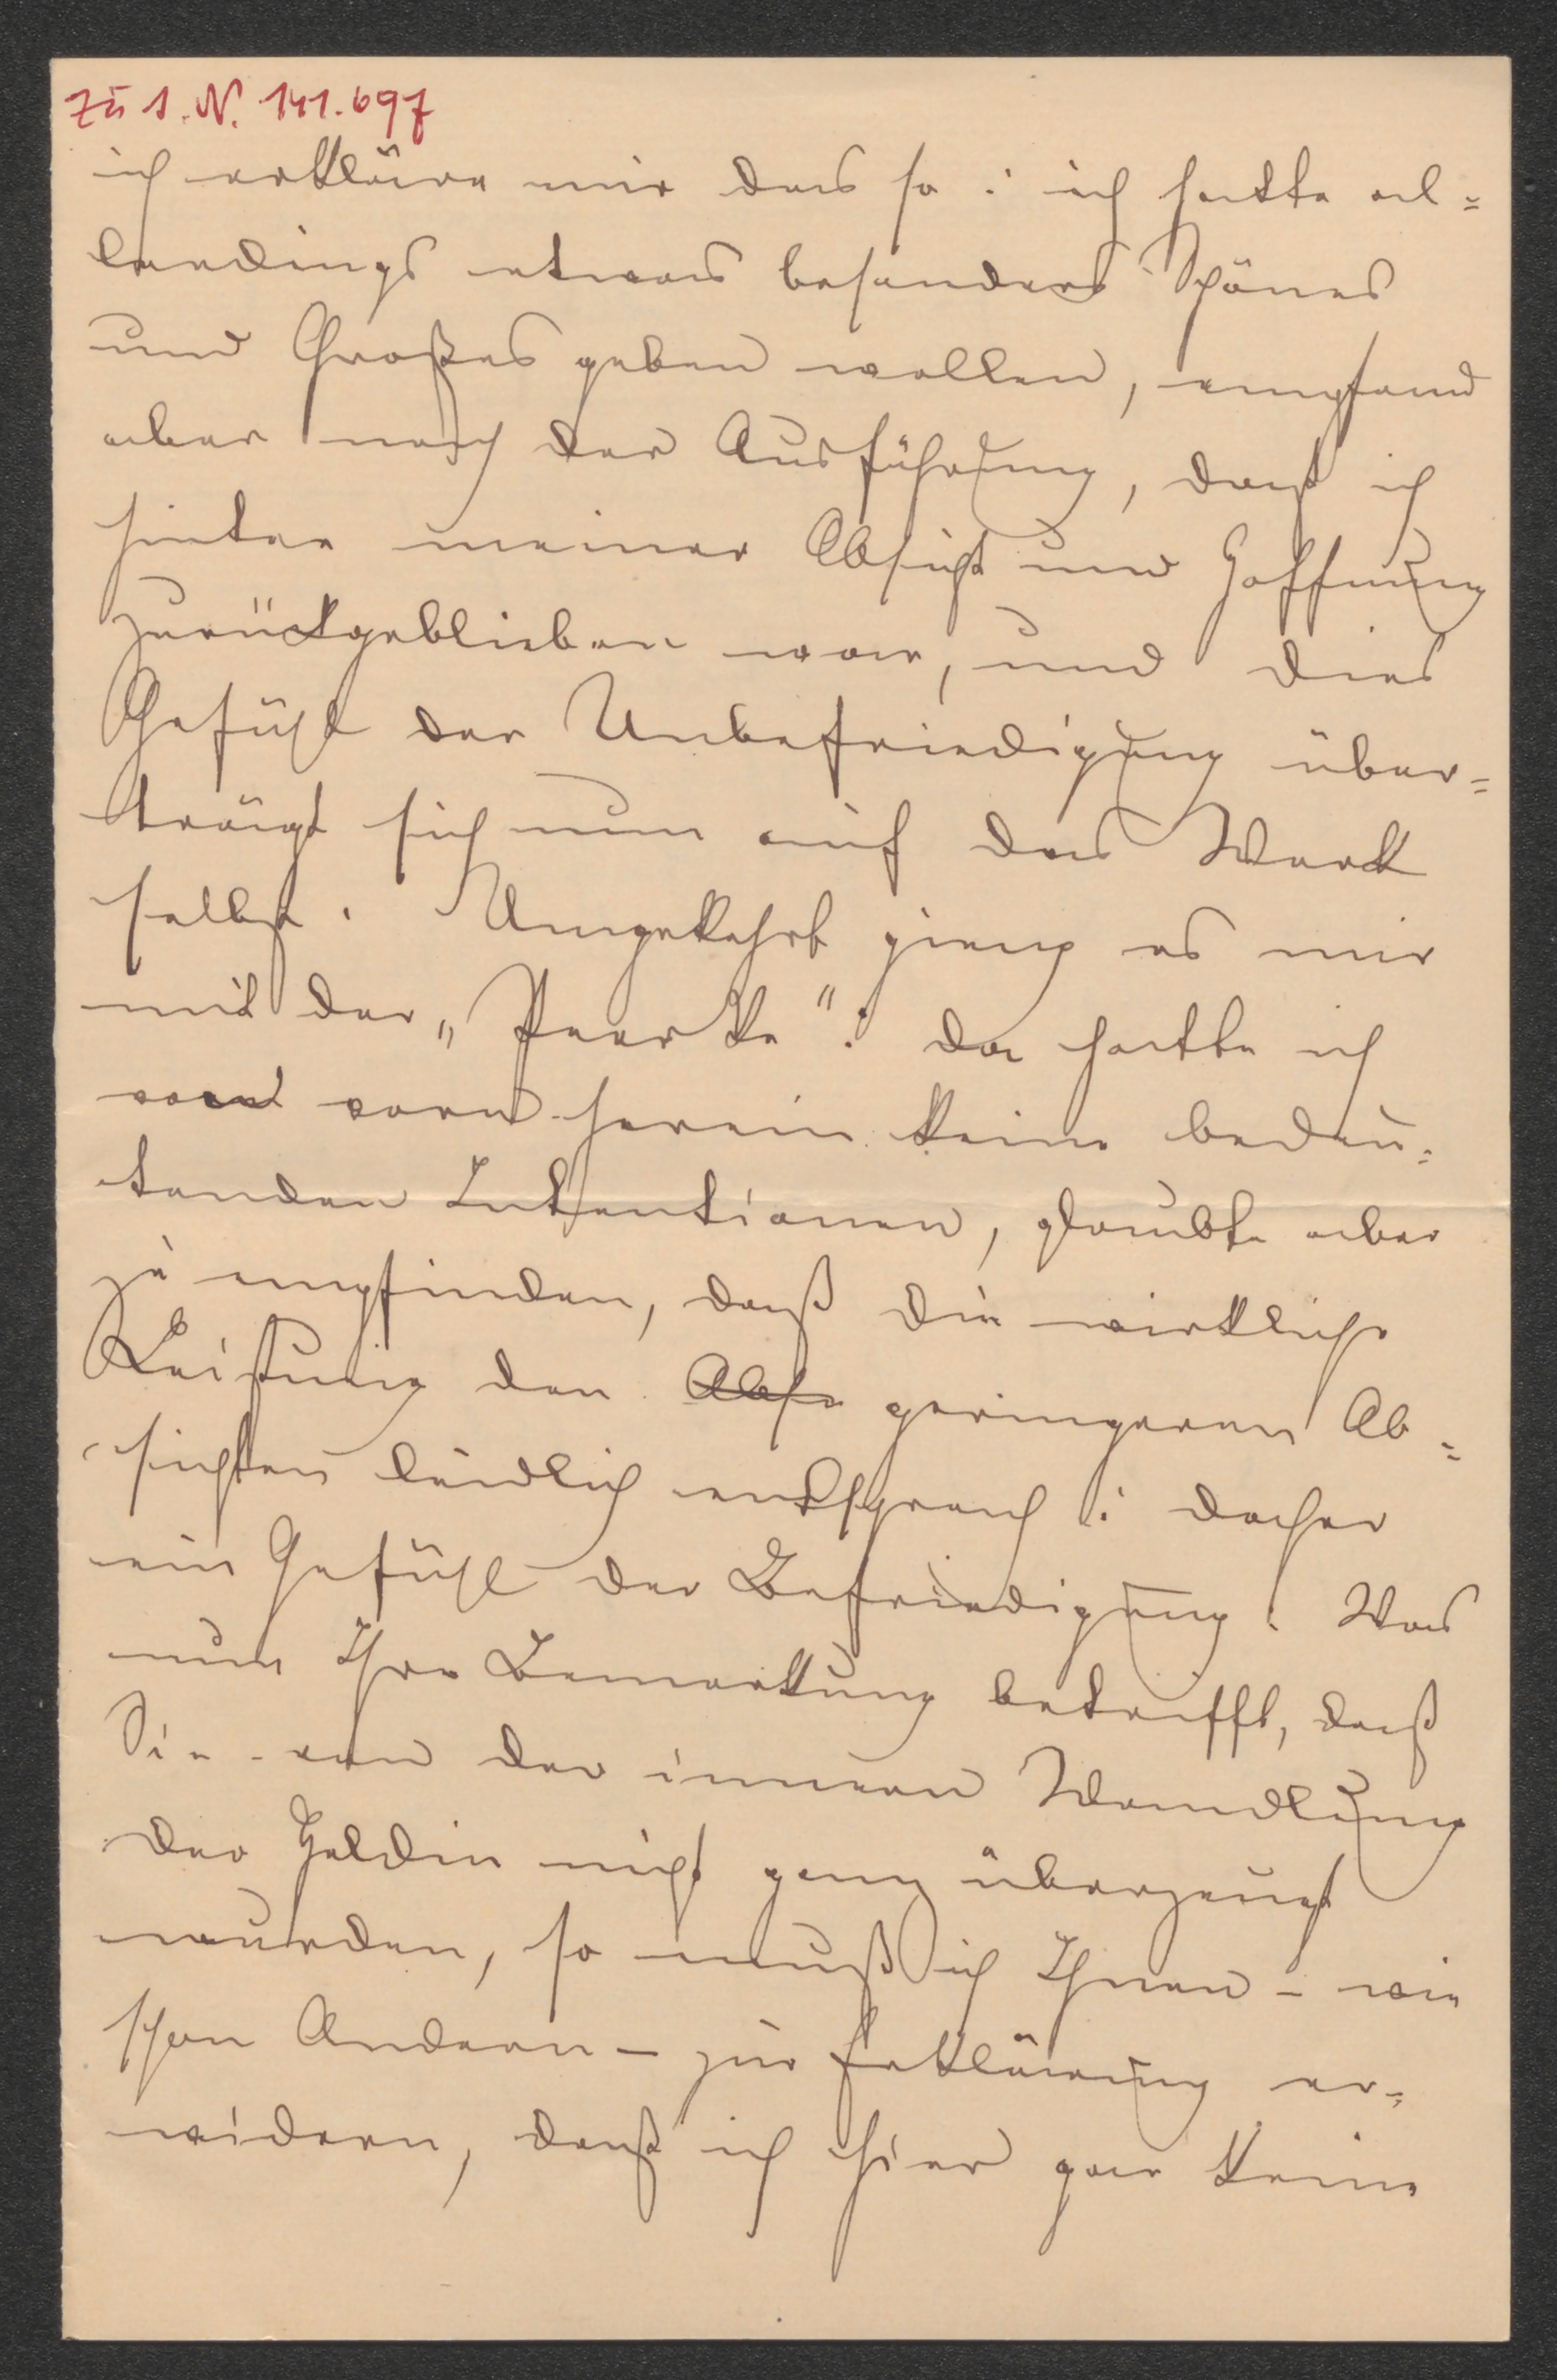 zu I.N. 141.697
ich erkläre mir das so: ich hatte al=
lerdings etwas besonders Schönes
und Großes geben wollen, empfand
aber nach der Ausführung, daß ich
hinter meiner Absicht und Hoffnung
zurückgeblieben war, und dies
Gefühl der Unbefriedigung über=
trägt sich nun auf das Werk
selbst. Umgekehrt gieng es mir
mit der "": da hatte ich
von vorn herein keine bedeu=
tenden Intentionen, glaubte aber
zu empfinden, daß die wirkliche
Leistung den Abse geringeren Ab=
sichten leidlich entsprach: daher
ein Gefühl der Befriedigung. Was
nun Ihre Bemerkung betrifft, daß
Sie von der innern Wandlung
der Heldin nicht ganz überzeugt
wurden, so muß ich Ihnen – wie
schon Andern – zur Erklärung er=
widern, daß ich hier gar keine